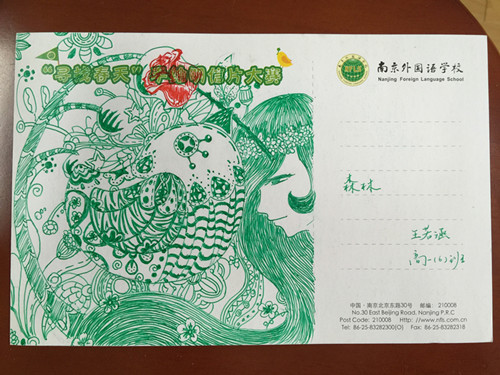 “寻找春天”手绘明信片大赛
NFLS
南京外国语学校
Nanjing Foreign Language School
森林
王若涵
高一(6)班
中国·南京北京东路30号 邮编：210008
No.30 East Beijing Road, Nanjing P.R.C
Post Code: 210008 Http: //www.nfls.com.cn
Tel: 86-25-83282300(O) Fax: 86-25-83282318